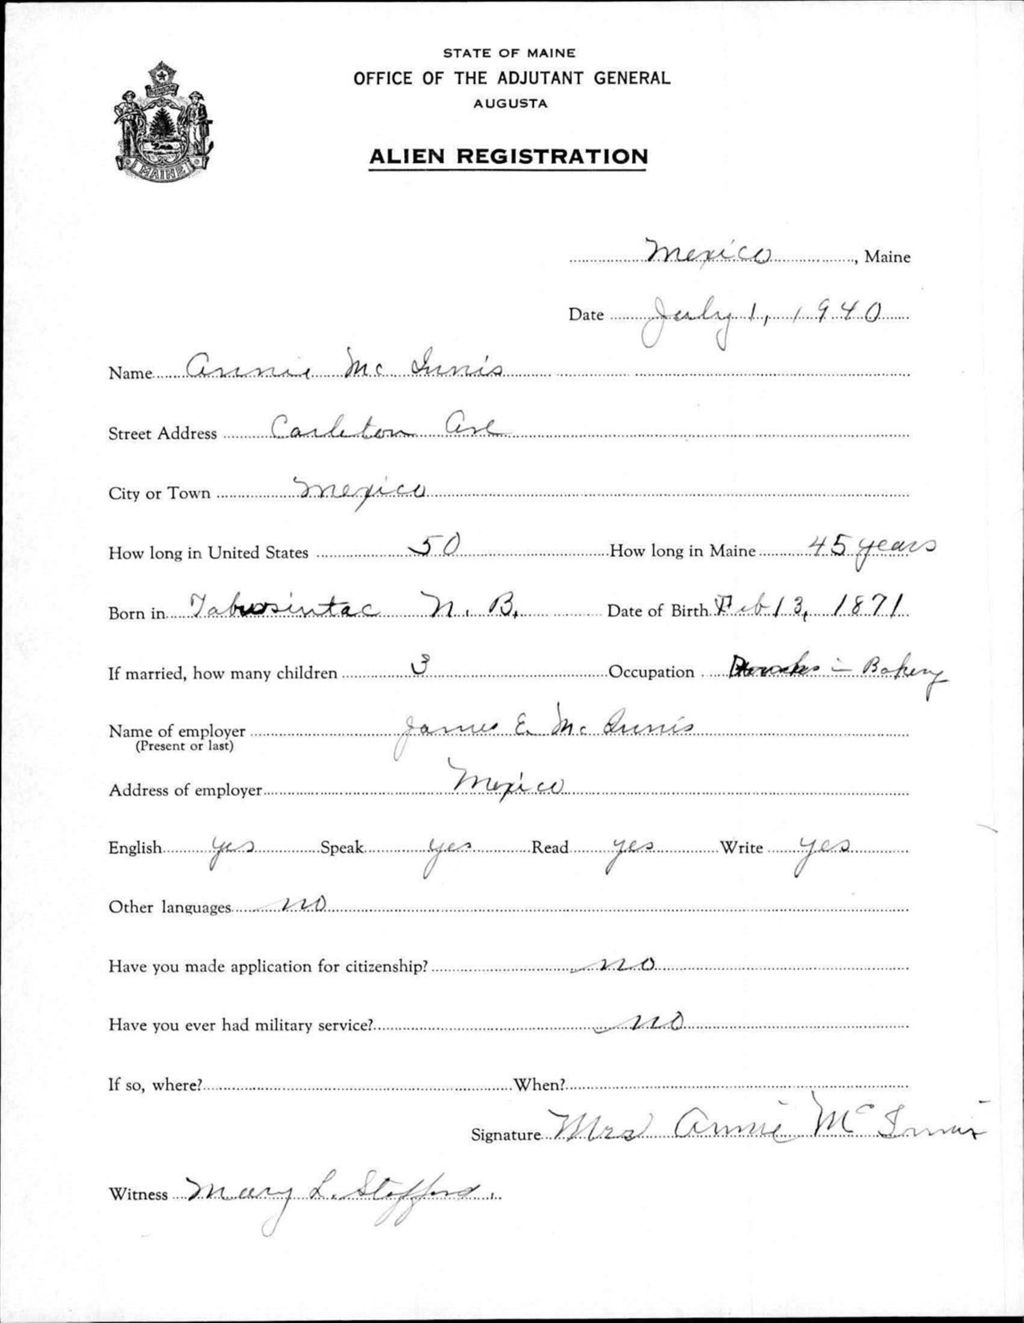 STATE OF MAINE
OFFICE OF THE ADJUTANT GENERAL
AUGUSTA
ALIEN REGISTRATION
MAINE
Mexico, Maine
Date July 1, 1940
Name Annie Mc Innis
Street Address Carleton Ave
City or Town Mexico
How long in United States 50 How long in Maine 45 years
Born in Tabusintac N. B. Date of Birth Feb 13, 1871
If married, how many children 3 Occupation in Bakery
Name of employer James E. Mc Innis
(Present or last)
Address of employer Mexico
English yes Speak yes Read yes Write yes
Other languages no
Have you made application for citizenship? no
Have you ever had military service? no
If so, where? When?
Signature Mrs Annie Mc Innis
Witness Mary L. Stafford.